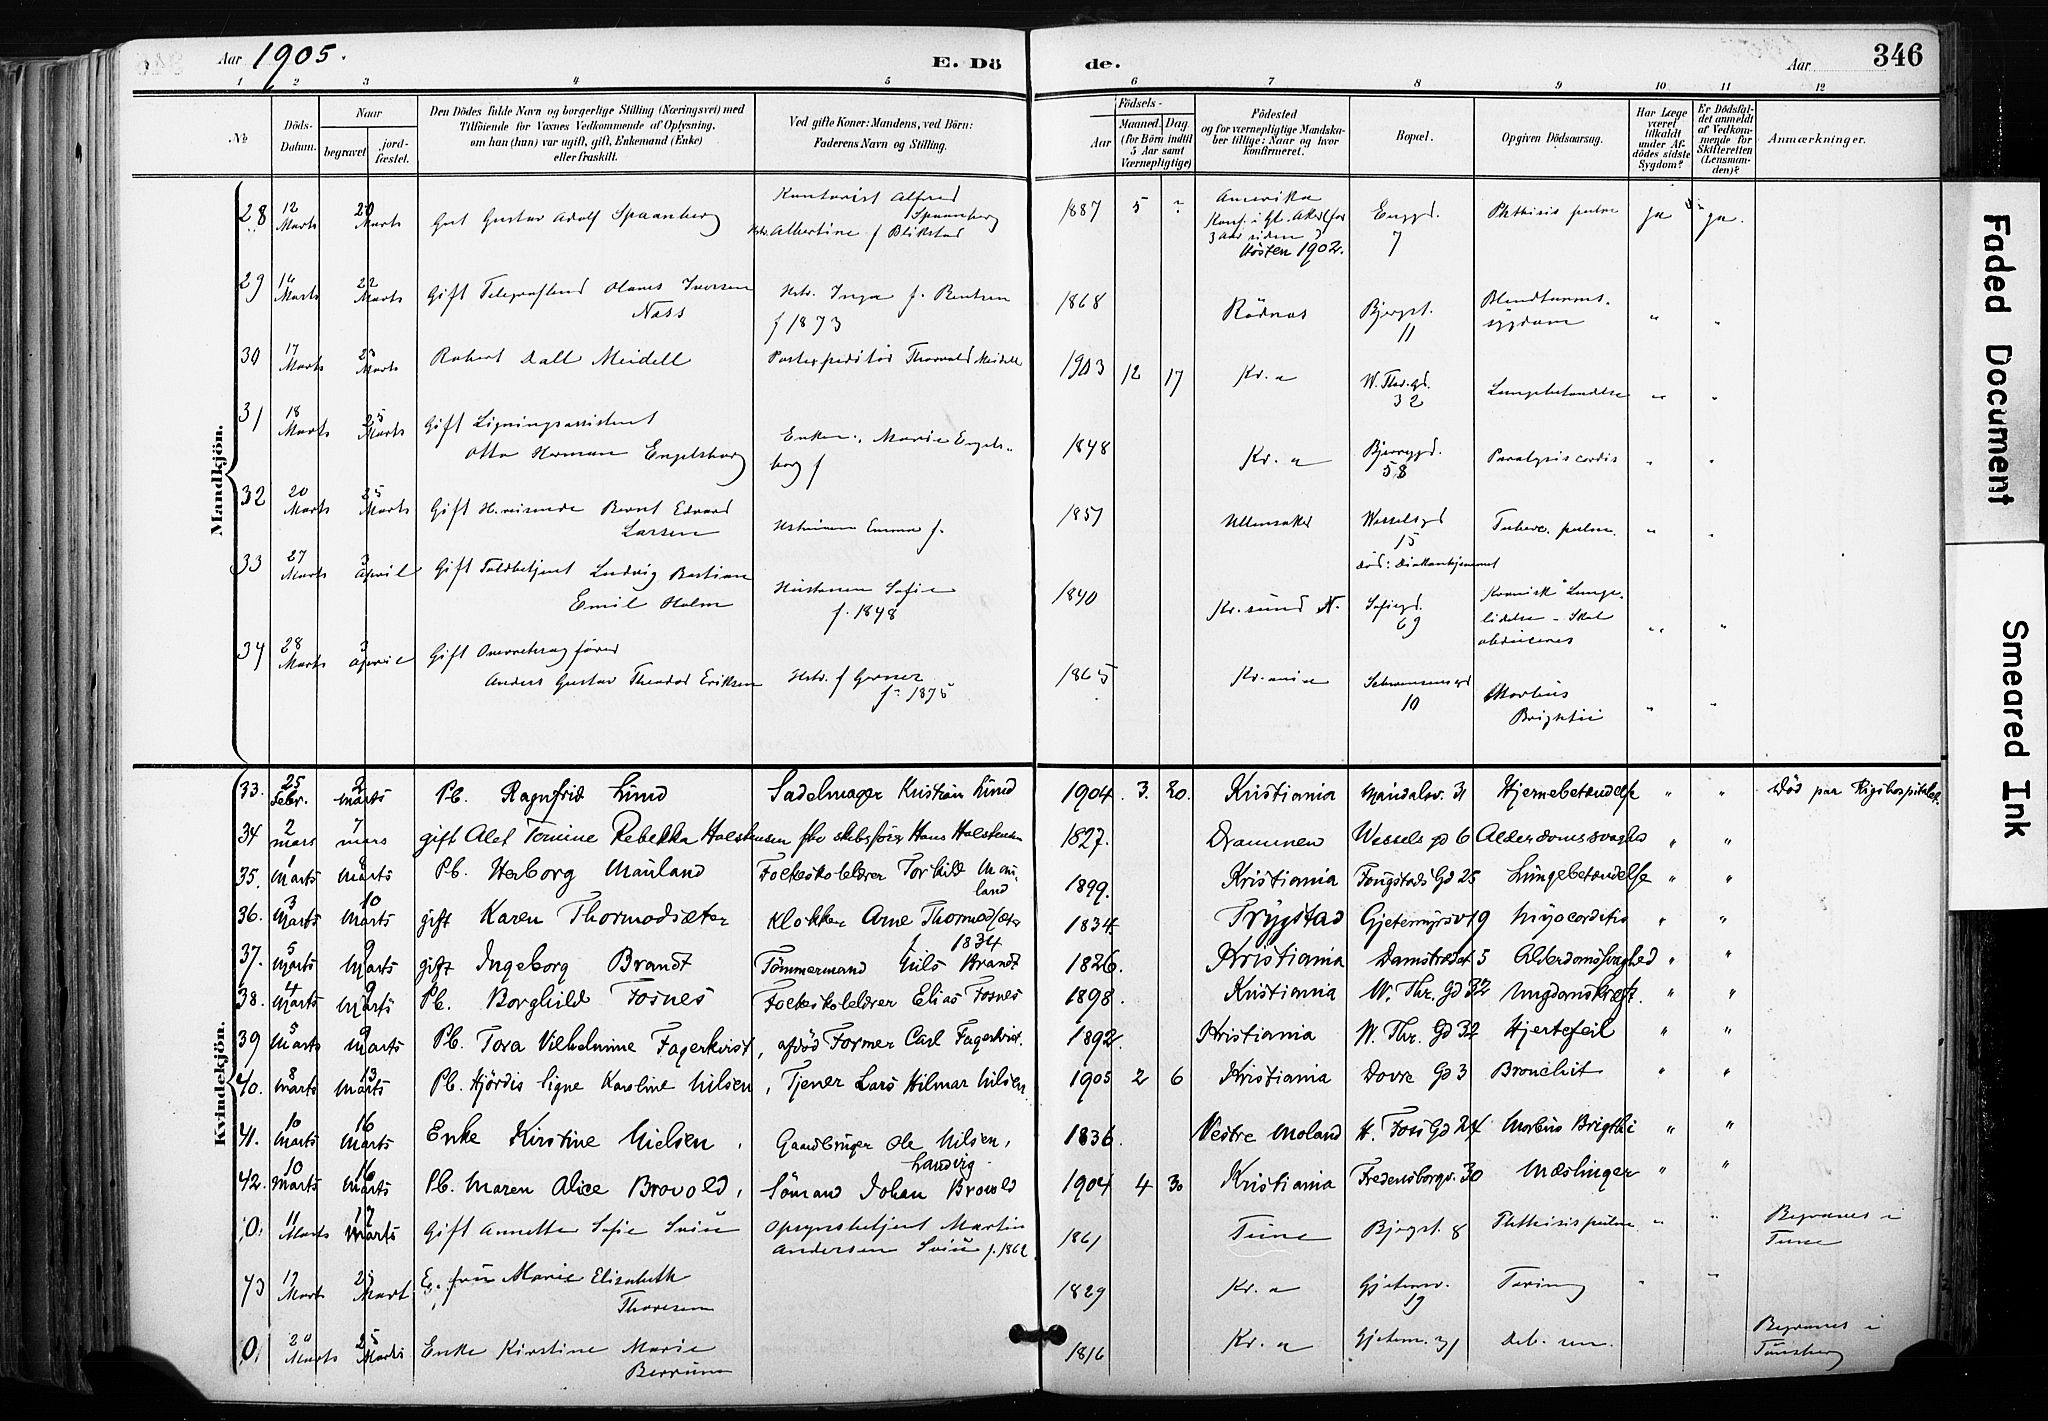 Aar 1905.
E. Dö de.
Aar
346
1 2 3 4 5 6 7 8 9 10 11 12
№
Döds-Datum.
Naar
begravet
jord-fæstet.
Den Dödes fulde Navn og borgerlige Stilling (Næringsvei) med
Tilföiende for Voxnes Vedkommende af Oplysning,
om han (hun) var ugift, gift, Enkemand (Enke)
eller fraskilt.
Ved gifte Koner: Mandens, ved Börn:
Faderens Navn og Stilling.
Födsels-
Aar
Maaned. Dag
(for Börn indtil
5 Aar samt
Værnepligtige)
Födested
og for værnepligtige Mandska-
ber tillige: Naar og hvor
konfirmeret.
Bopæl.
Opgiven Dödsaarsag.
Har Læge
været
tilkaldt
under Af-
dödes sidste
Sygdom?
Er Dödsfal-
det anmeldt
af Vedkom-
mende for
Skifteretten
(Lensman-
den)?
Anmærkninger.
Mandkjön.
28 12 Marts 20 Marts Gustav Adolf Spaanberg Kontorist Alfred Spaanberg Albertine f Blikstad 1887 5 ? Amerika 3 Aar siden Høsten 1902. Enggd. 7 Phthisis pulm ja ja.
29 Marts 22 Marts Gift Olaves Iversen Næss Hstr. Inga f. Bentsen f 1873 1868 Rödnæs Bjergst. 11 Blindtarms-sygdom " "
30 17 Marts Marts Robert Dall Meidell Postexpeditör Thorvald Meidell 1903 12 17 Kr.a W. Thr. gd. 32 Lungebetændelse " "
31 18 Marts 25 Marts Gift Ligningsassistent Otto Herman Engelsborg Enken: Marie Engelsborg f 1848 Kr.a 58 Paralysis cordis " "
32 20 Marts 25 Marts Gift H.reisende Bernt Edvard Larsen Hstruen Emma f. 1857 Ullensaker Wesselsgd 15 Tuberc. pulm. " "
död: Diakonhjemmet
33 27 Marts 3 April Gift Toldbetjent Ludvig Bastian Emil Holm Hustruen Sofie f. 1848 1840 Kr.sund N. Sofiegd. 69 Kronisk Lunge-lidelse " "
34 28 Marts 3 April Gift Overretssagförer Anders Gustav Theodor Eriksen Hstr. f f. 1875 1865 Kr.ania Schwensensgd 10 Morbus Brightii " "
Kvindekjön.
33. 25 Febr. 2 Marts Pb. Ragnfrid Lund Sadelmager Kristian Lund 1904. 3. 20. Kristiania Maridalsv. 31 Hjernebetændelse " " Död paa Rigshospitalet.
34 2 mars 7 mars gift Alet Tomine Rebekka Holstensen fhv skibsförer Hans Holstensen 1827. Drammen Wessels gd 6 Alderdomssvaghed " "
35. 1 Marts 8 Marts Pb. Herborg Mauland Folkeskolelærer Torkild Mauland 1899. Kristiania Fougstads Gd 25 Lungebetændelse " "
36. 3 Marts 10 Marts gift Karen Thormodsæter Klokker Arne Thormodsæter f 1834 1834 Trygstad Gjetemyrsv 19 Myocorditis " "
37. 5 Marts 9 Marts gift Ingeborg Brandt Tömmermand Nils Brandt 1826. Kristiania Damstrædet 5 Alderdomssvaghed " "
38. 4 Marts 9 Marts Pb. Borghild Fosnes Folkeskolelærer Elias Fosnes 1898. Kristiania W. Thr. Gd 32 " "
39 5 Marts 9 Marts Pb. Tora Vilhelmine Fagerkvist, afdöd Former Carl Fagerkvist. 1892. Kristiania W. Thr. Gd 32 Hjertefeil " "
40. 8 Marts 13 Marts Pb. Hjördis Signe Karoline Nilsen, Tjener Lars Hilmar Nilsen. 1905 2 6 Kristiania Dovre Gd 3 Bronchit " "
41. 10 Marts 16 Marts Enke Kirstine Nielsen, Gaardbruger Ole Nilsen, Landvig. 1836. Vestre Moland W. Foss Gd 24 Morbus Brigthi " "
42. 10 Marts 16 Marts Pb. Maren Alice Brovold, Sömand Johan Brovold 1904 4 30 Kristiania Fredensborgv. 30 Mæslinger " "
0. 11 Marts 17 Marts Gift Annette Sofie Sviu Opsynsbetjent Martin Andersen Sviu f. 1862 1861 Tune Bjergst. 8 Phthisis pulm " " Begraves i Tune
43 Marts Marts Marie Elisabeth Thoresen 1829 Kr.a Gjetemv. 19 Tæring " "
0. 20 Marts 25 Marts Enke Kirstine Marie Berrum 1816 Kr.a Gjetem. 31 Deb. sen. Begraves i Tönsberg
Faded Document
Smeared Ink